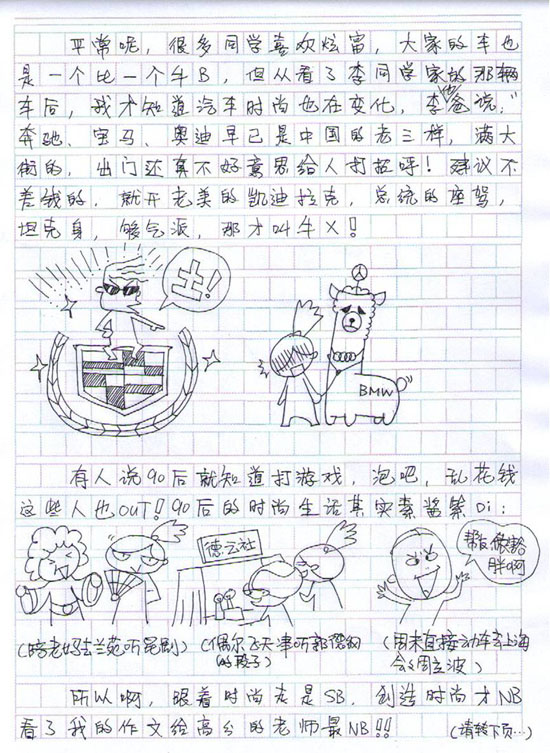 平常呢，很多同学喜欢炫富，大家的车也
是一个比一个牛B，但从看了李同学家的那辆
车后，我才知道汽车时尚也在变化，李他爸说，"
奔驰、宝马、奥迪早已是中国的老三样，满大
街的，出门还真不好意思给人打招呼！建议不
差钱的，就开老美的凯迪拉克，总统的座驾，
坦克身，够气派，那才叫牛X！
土！
BMW
有人说90后就知道打游戏，泡吧，乱花钱
这些人也OUT！90后的时尚生活其实素酱紫Di：
德云社
帮我做豁
胖啊
(陪老妈去兰苑听昆剧)
(偶尔飞天津听郭德纲
的段子)
(周末直接动车去上海
会会周立波)
所以啊，跟着时尚走是SB，创造时尚才NB
看了我的作文给高分的老师最NB!!
(请转下页…)